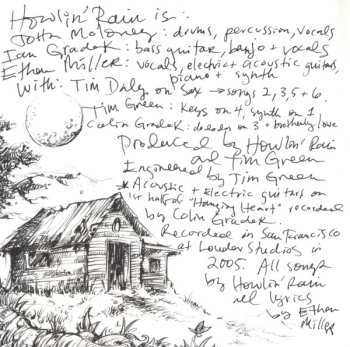 Howlin' Rain is:
John Moloney: drums, percussion, vocals
Ian Gradek: bass guitar, banjo + vocals
Ethan Miller: vocals, electric + acoustic guitars,
piano + synth
With: Tim Daly on sax → songs 2, 3, 5 + 6
Tim Green: keys on 4, synth on 1
Colin Gradek: on 3 + brotherly love
Produced by Howlin' Rain
and Tim Green
Engineered by Tim Green
* Acoustic + electric guitars on
1st half of "Hanging Heart" recorded
by Colin Gradek.
Recorded in San Francisco
at Louder Studios in
2005. All songs
by Howlin Rain
all lyrics
by Ethan
Miller